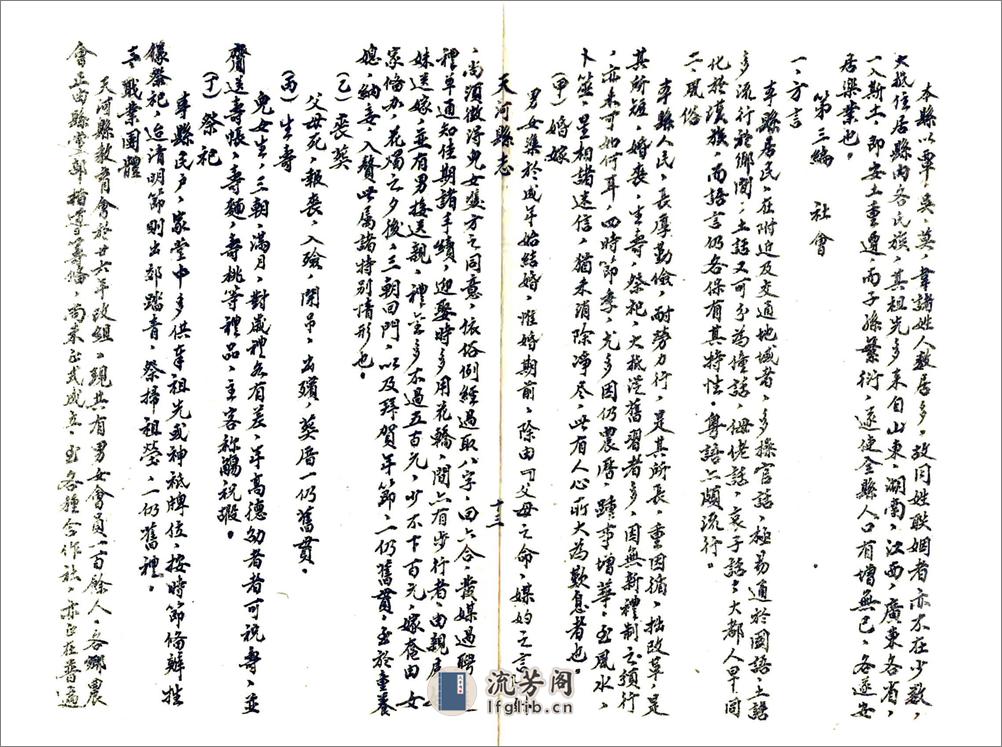 本縣以覃、吳、莫、韋諸姓人數居多，故同姓聯姻者亦不在少數，
大抵住居縣內各民族，其祖先多來自山東，湖南，江西，廣東各省，
一入斯土，即安土重遷，而子孫繁衍，遂使全縣人口有增無已，各遂安
居樂業也。
第三編 社會
一、方言
本縣居民，在附近及交通地域者，多操官話，極易通於國語，土語
多流行於鄉間，土語又可分為僮話，姆佬話，哀子話，大都人早同
化於漢族，而語言仍各保有其特性。粵語亦頗流行。
二、風俗
本縣人民，長厚勤儉，耐勞力行，是其所長，重因循，拙改革，是
其所短，婚喪，生壽，祭祀，大抵從舊習者多，因無新禮制之頒行
，亦未可如何耳，四時節季，尤多因仍農曆，踵事增華，至風水，
卜筮，星相諸迷信，猶未消除淨盡，此有人心所大為歎息者也。
(甲)婚嫁
男女集於成年始結婚，惟婚期前，除由父母之命，媒妁之言
天河縣志
十三
，尚須徵得兒女雙方之同意，依俗例經過取八字，曰六合，發媒過聘
禮單通知佳期諸手續，迎娶時多用花轎，間亦有步行者，由親房
妹送嫁，並有男接送親，禮金多不過五百元，少不下百元，嫁奩由女
家備办，花燭之夕後，三朝回門，以及拜賀年節，一仍舊貫，至於童養
媳，納妾，入贅此屬諸特別情形也。
(乙)喪葬
父母死，報喪，入殮，開弔，出殯，葬厝一仍舊貫。
(丙)生壽
兒女生，三朝，滿月，對歲禮各有差，年高德劭者者可祝壽，並
齎送壽帳，壽麵，壽桃等禮品，主客称觴祝嘏。
(丁)祭祀
本縣民戶，家堂中多供奉祖先或神祇牌位，按時節備辦牲
儀祭祀，迨清明節則出郊踏青，祭掃祖塋，一仍舊禮。
三、職業團體
天河縣教育會於廿六年改組，現共有男女會員一百餘人，各鄉農
會正由縣黨部指導籌備，尚未正式成立，至各種合作社，亦正在普遍
流芳阁
lfglib.cn